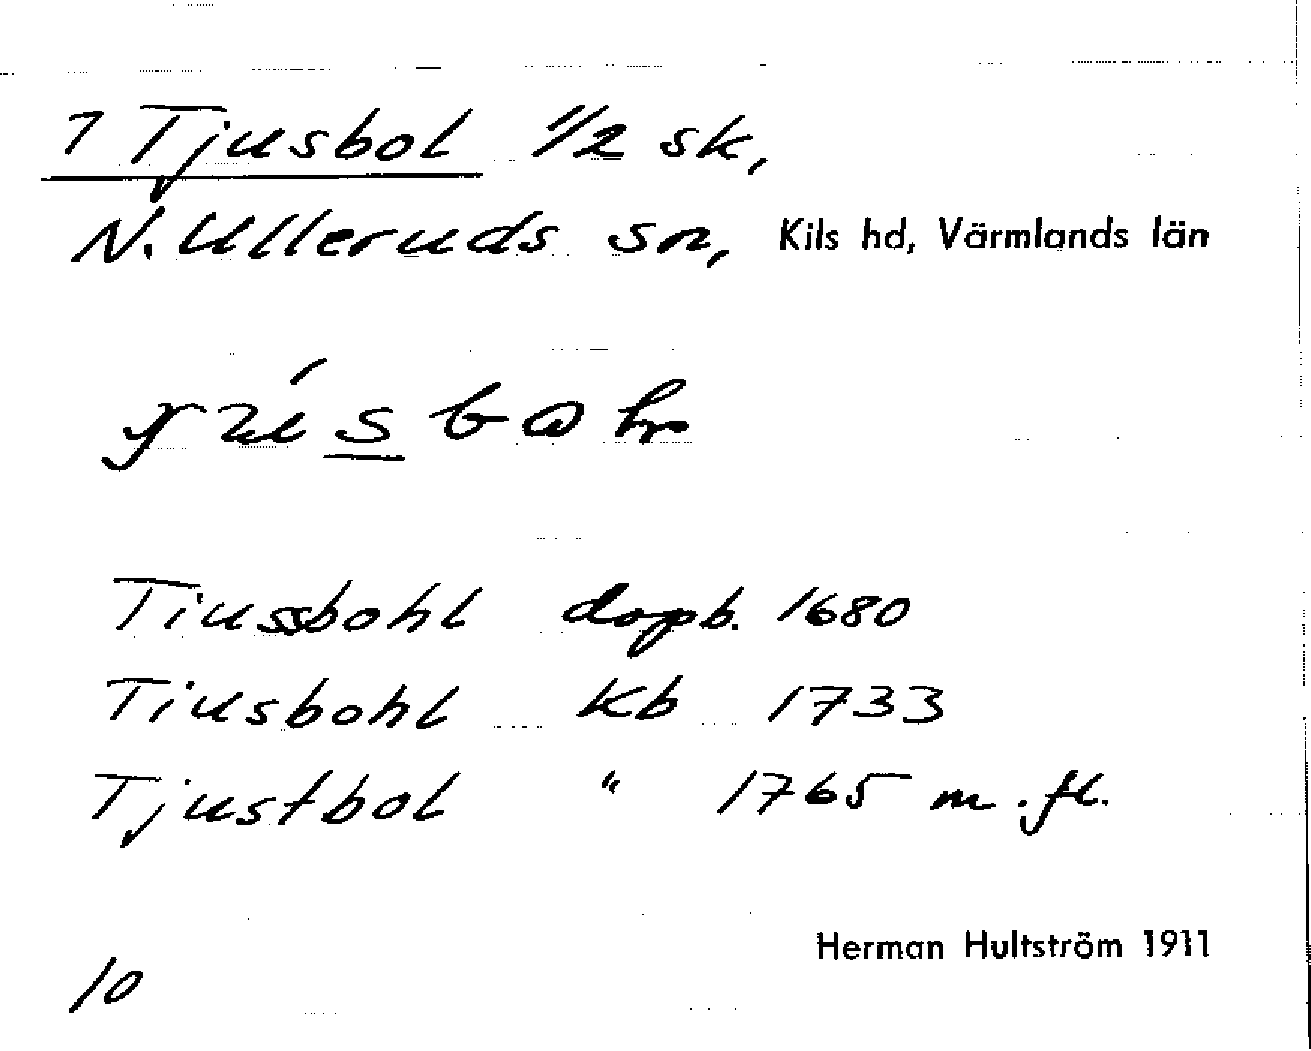 1 Tjusbol 1/2 sk,
N. Ulleruds sn, Kils hd, Värmlands län
Tiussbohl dopb. 1680
Tiusbohl kb 1733
Tjustbol " 1765 m.fl.
Herman Hultström 1911
10